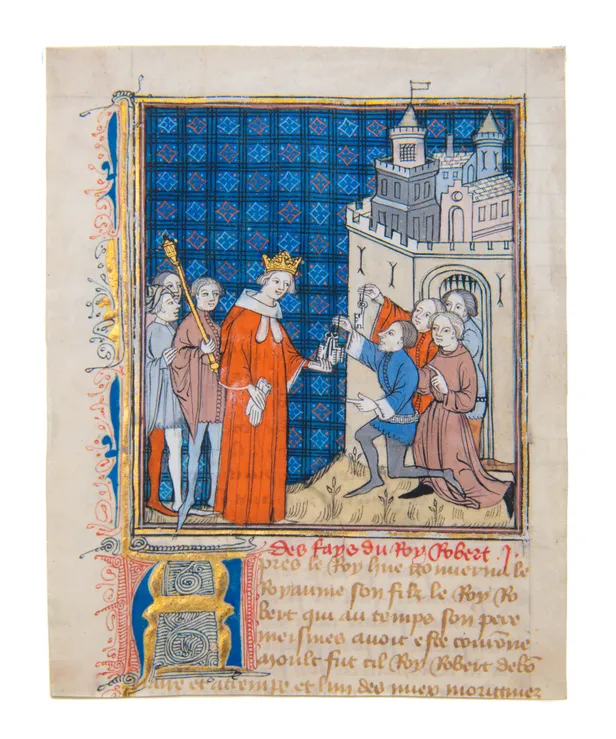 des fays du Roy Robert .j.
pres le Roy hue gouuerna le
Royaume son filz le Roy Ro
bert qui au temps son pere
meismes auoit este couronne
moult fut cil Roy Robert debō
aire et attempe et lun des miex morigniez